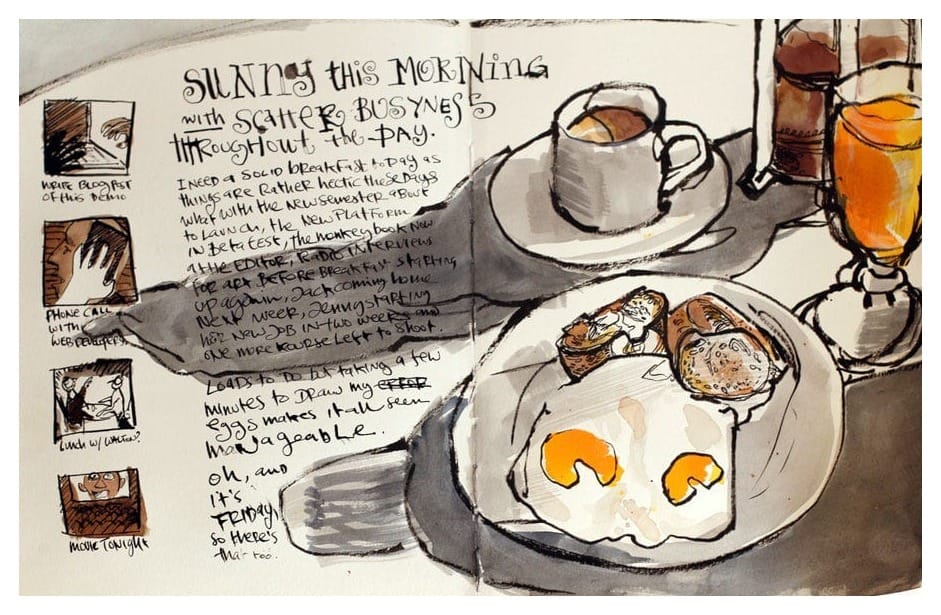 SUNNY this MORNING
with SCAtteR BUSYNESS
thROUGHOUT the DAY.
I NEED A SOLID breakfast today as
things are Rather hectic these days
what with the New semester about
to Launch, the New Platform
IN Beta test, the monkey book NOW
at the EDITOR, RADIO INTERVIEWS
FOR ART BEFORE BREAKFAST STARTING
up again, Jack coming home
Next week, Jenny starting
her New JOB IN two weeks and
one more Kourse Left to Shoot.
LOADS to DO but taking a few
minutes to DRAW my
eggs makes it all seem
manageable.
Oh, and
it's
FRIDAY,
so there's
that too.
WRITE BLOG POST
OF this DEMO
PHONE CALL
WITH
WEB DEVELOPERS
LUNCH W/ WALTON?
MOVIE TONIGHT